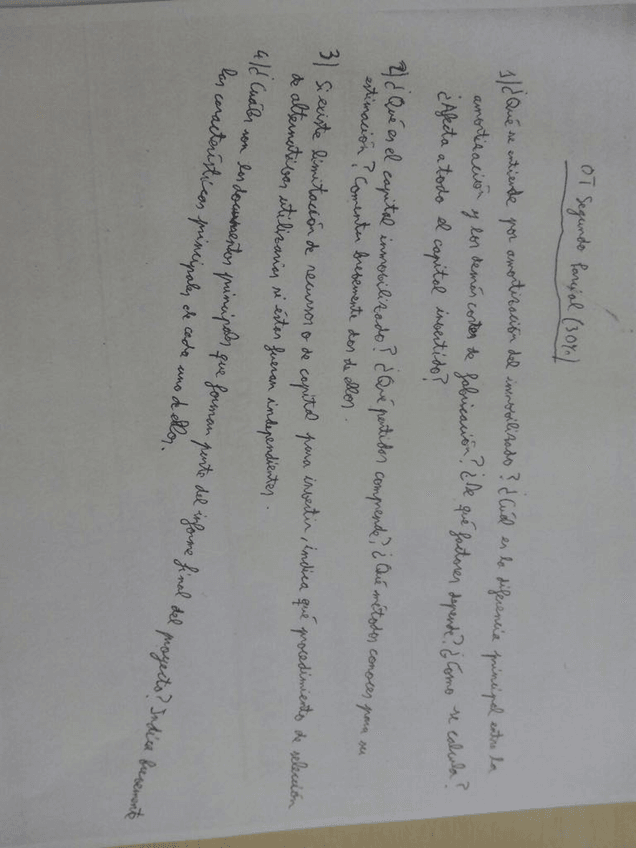 OT Segundo Parcial (30%)
1) ¿Qué se entiende por amortización del inmovilizado? ¿Cuál es la diferencia principal entre la
amortización y los demás costes de fabricación? ¿De qué factores depende? ¿Como se calcula?
¿Afecta a todo el capital invertido?
2) ¿Qué es el capital inmovilizado? ¿Qué partidas comprende? ¿Qué métodos conoces para su
estimación? Comenten brevemente dos de ellos.
3) Si existe limitación de recursos o de capital para invertir, indica qué procedimiento de selección
de alternativas utilizarías si éstas fueran independientes.
4) ¿Cuáles son los documentos principales que forman parte del informe final del proyecto? Indica brevemente
las características principales de cada uno de ellos.